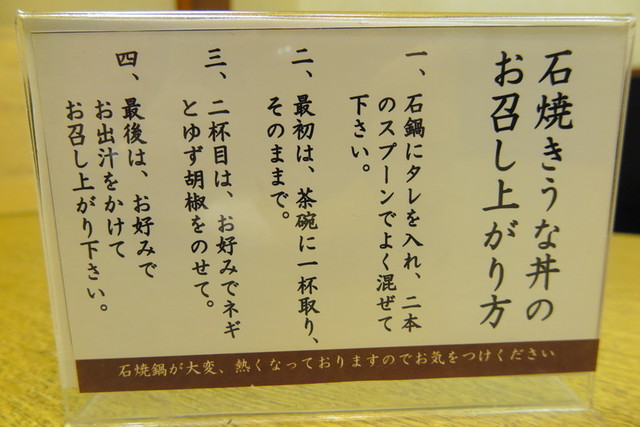 石焼きうな丼の
お召し上がり方
一、石鍋にタレを入れ、二本
のスプーンでよく混ぜて
下さい。
二、最初は、茶碗に一杯取り、
そのままで。
三、二杯目は、お好みでネギ
とゆず胡椒をのせて。
四、最後は、お好みで
お出汁をかけて
お召し上がり下さい。
石焼鍋が大変、熱くなっておりますのでお気をつけください